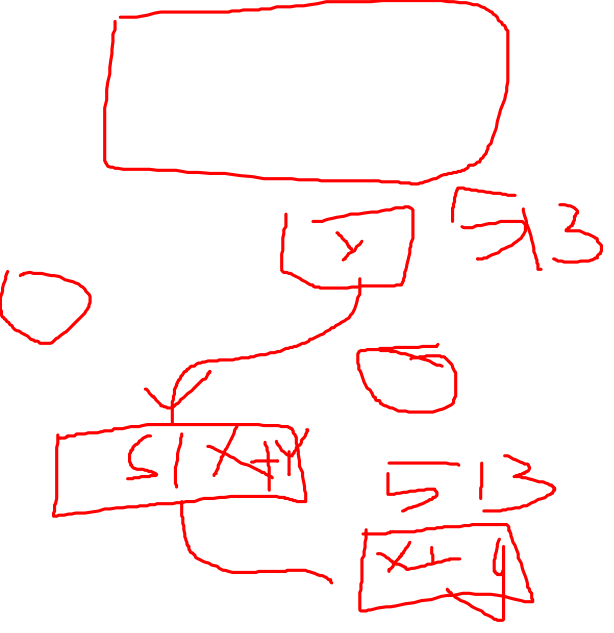 y
513
S|X+Y
513
x+y